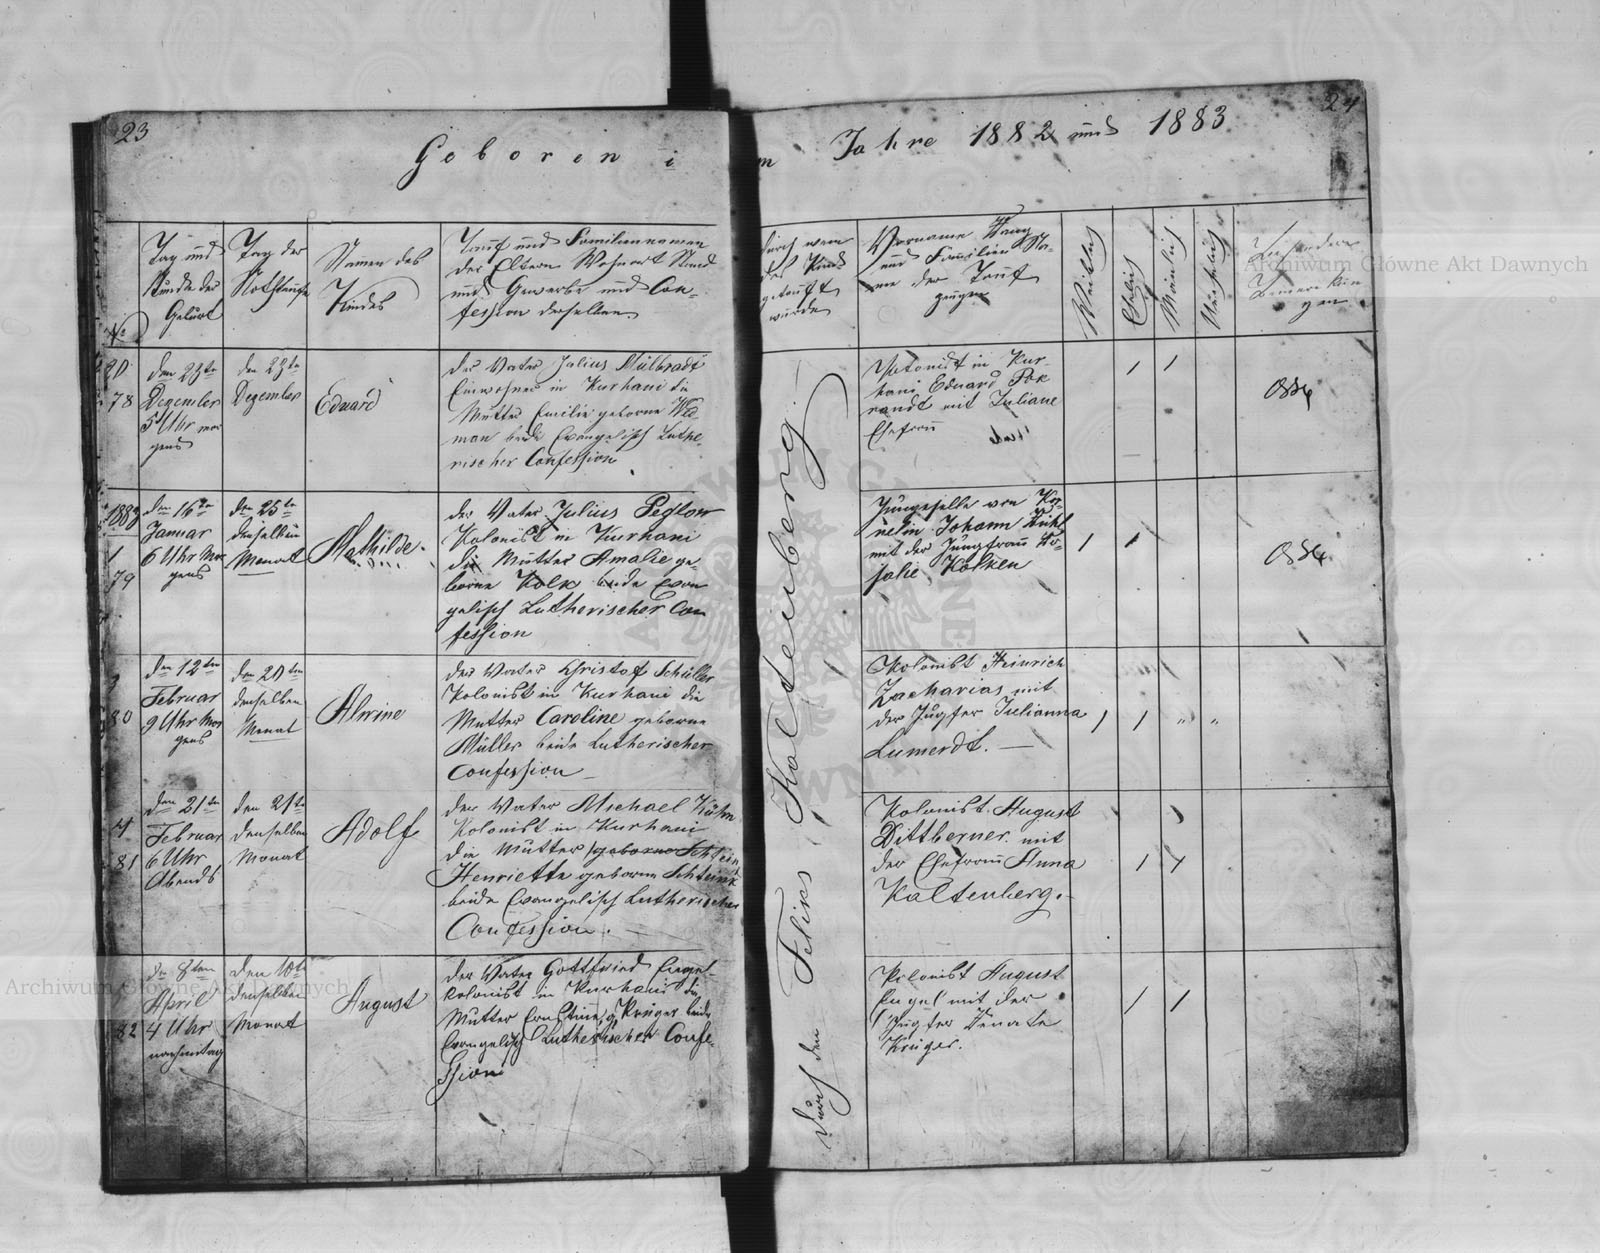 23
24
Geboren im Jahre 1882 und 1883
No
Tag und
Stunde der
Geburt
Tag der
Nothtaufe
Namen des
Kindes
Tauf und Familiennamen
der Eltern Wohnort Stand
und Gewerbe und Con-
fession derselben
durch wem
das Kind
getauft
wurde
Vorname Stand
und Familien Na-
me der Tauf
zeugen
Weiblich
Ehelich
Männlich
Unehelich
Besondere
Bemerkun
gen
78
den 23ten
Dezember
5 Uhr mor
gens
den 23ten
Dezember
Eduard
der Vater Julius Mülbradt
Einwohner in Kurhani die
Mutter Emilie geborne
beide Evangelisch Luthe-
rischer Confession
Kolonist in Kur-
hani Eduard
mit Juliane
Ehefrau
1883
1
79
den 16ten
Januar
6 Uhr Mor
gens
den 25ten
desselben
Monat
Mathilde.
der Vater Julius Peglow
Kolonist in Kurhani
die Mutter Amalie ge-
borne Kolk beide Evan
gelisch Lutherischer Con
fession
Junggeselle von
Johann
mit der Jungfrau Ro-
salie Kolken
80
den 12ten
Februar
9 Uhr Mor
gens
den 20ten
desselben
Monat
Alwine
der Vater Christof Schüller
Kolonist in Kurhani die
Mutter Caroline geborne
Müller beide Lutherischer
Confession
Kolonist Heinrich
Zacharias mit
der Jugfer Julianna
Lumerdt.
4
81
den 21ten
Februar
6 Uhr
Abends
den 21ten
denselben
Monat
Adolf
der Vater Michael Kühn
Kolonist in Kurhani
die Mutter geborne
Henriette geborne
beide Evangelisch Lutherischer
Confession.
Kolonist August
Dittberner mit
der Ehefrau Anna
Kaltenberg.
82
den 8ten
April
4 Uhr
nachmitag
den 10ten
denselben
Monat
August
der Vater Gottfried Engel
Kolonist in Kurhani die
Mutter Ernstine g. Krüger beide
Evangelisch Lutherischer Confe-
ssion
Kolonist August
Engel mit der
Jugfer Renate
Krüger.
durch den Felix Kaltenberg
Archiwum Główne Akt Dawnych
Archiwum Główne Akt Dawnych